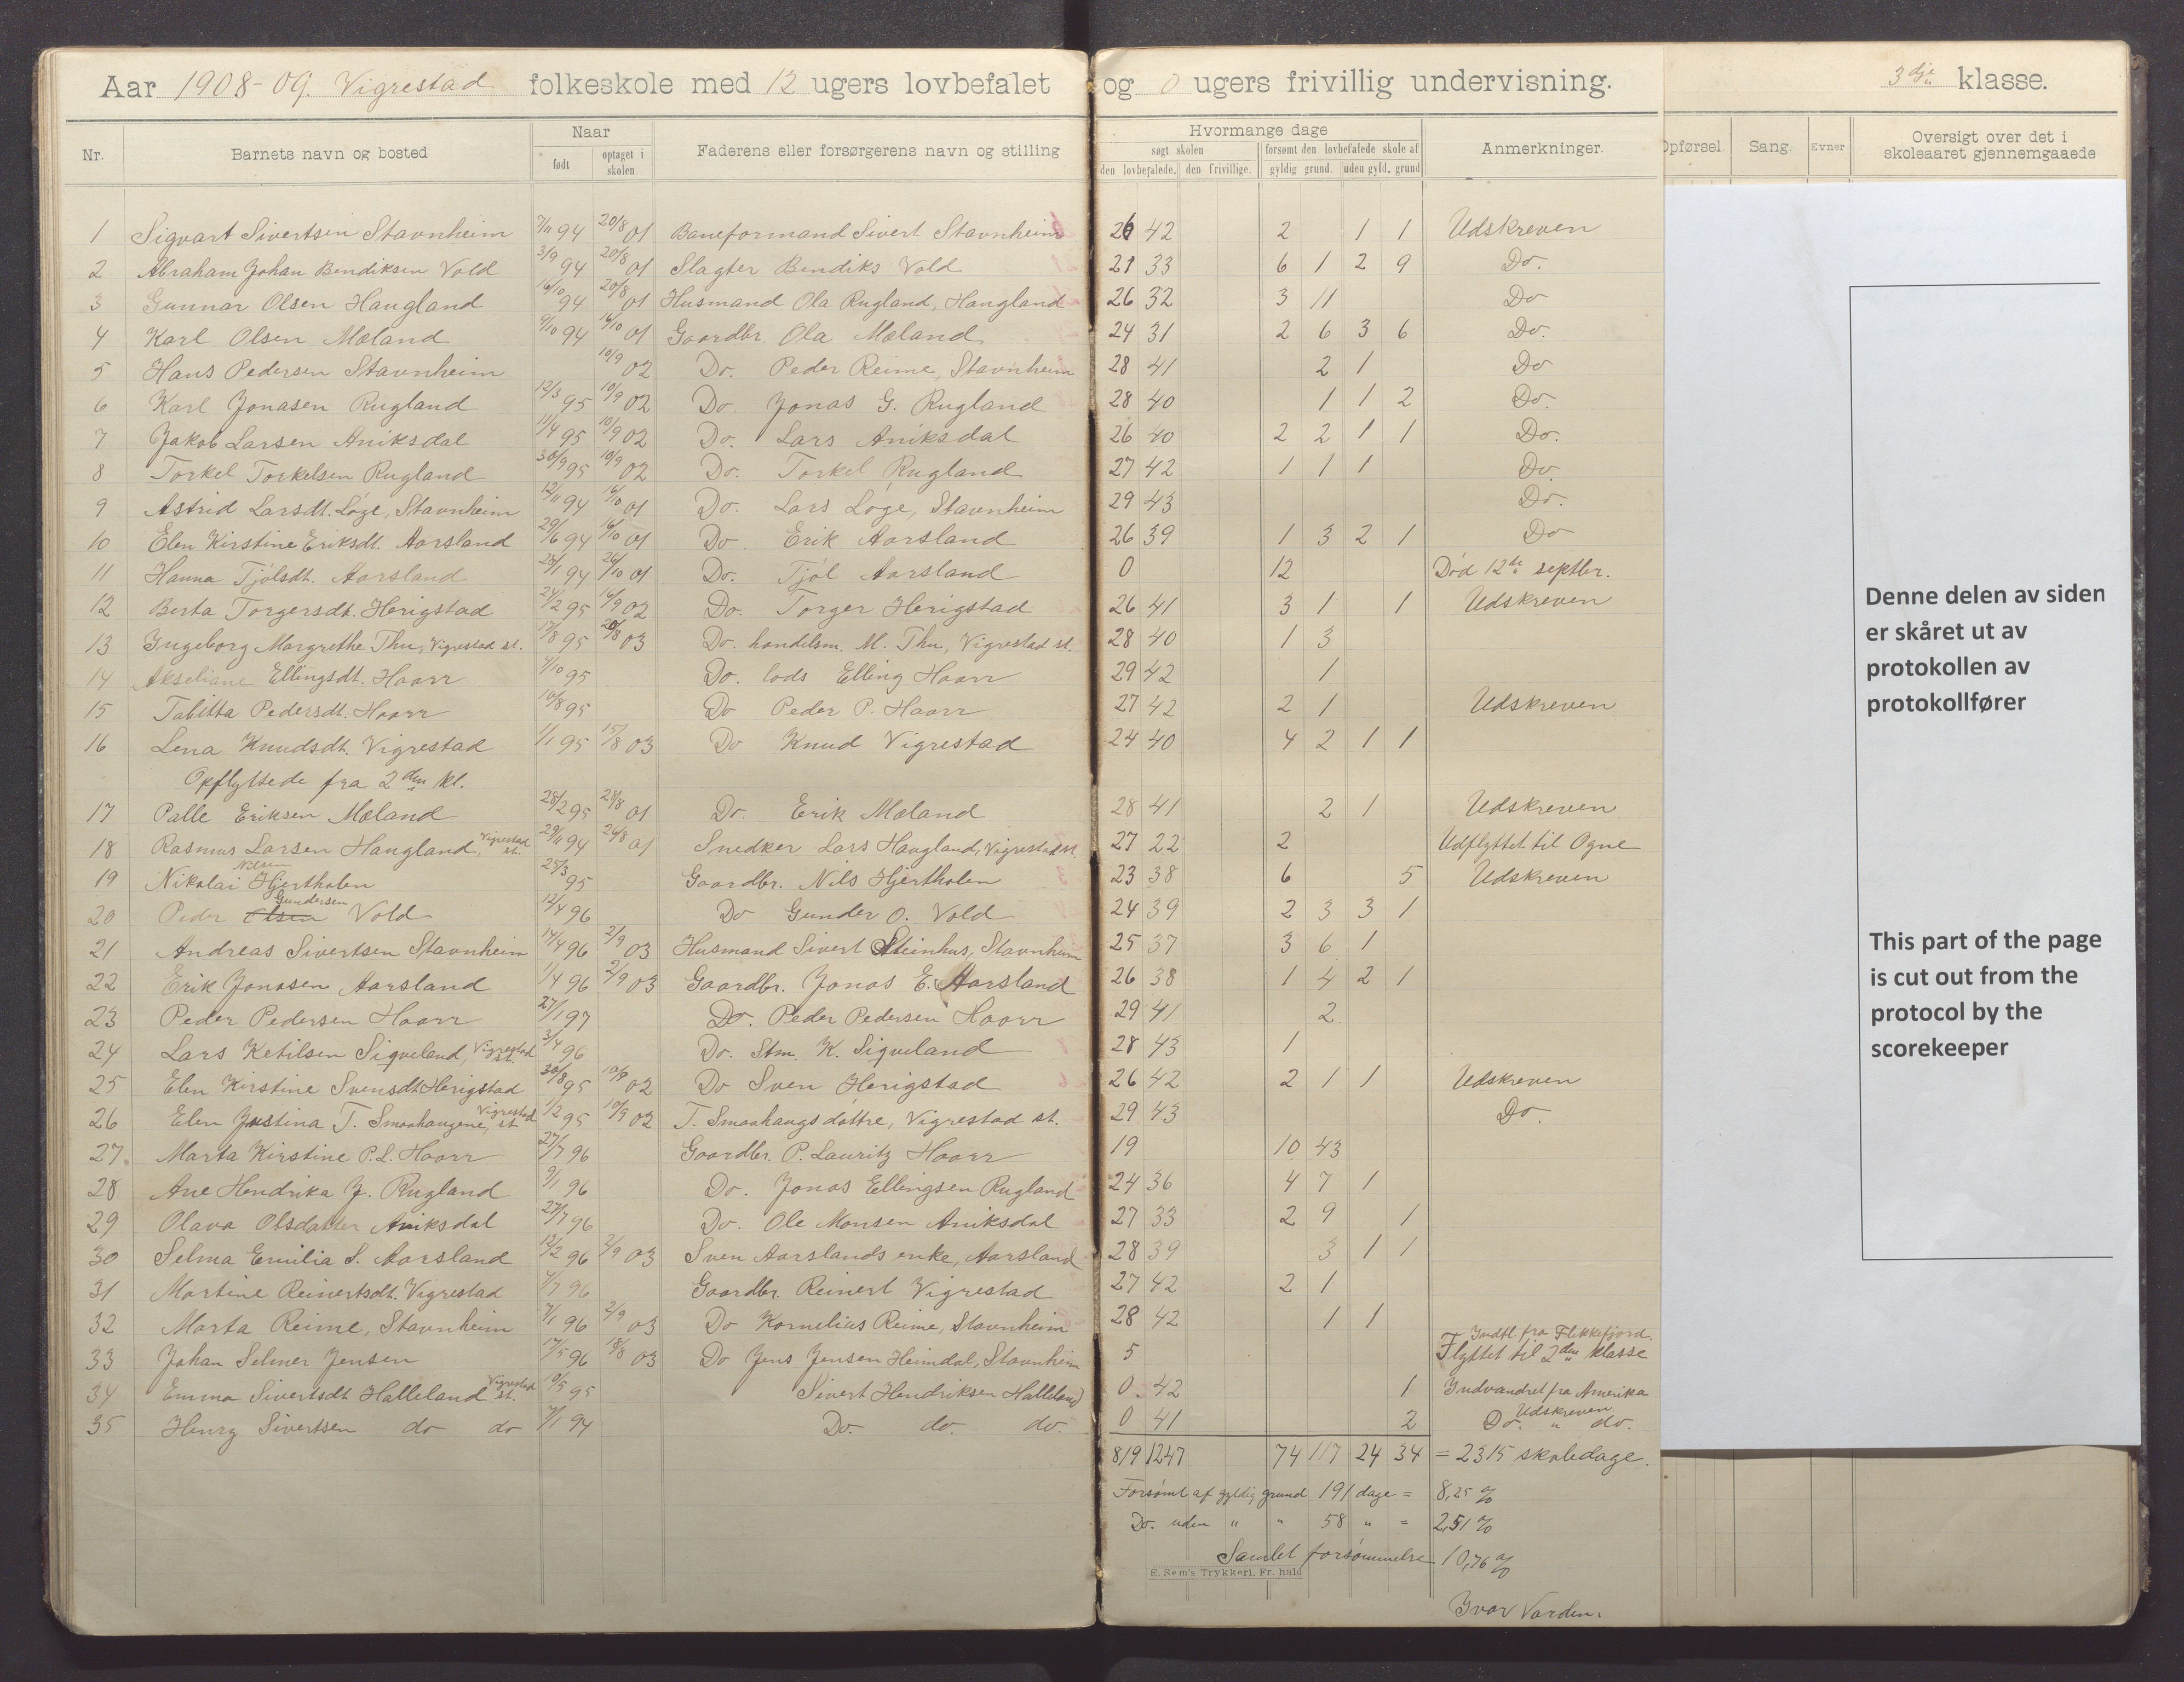 Aar 1908-09. Vigrestad folkeskole med 12 ugers lovbefalet og 0 ugers frivillig undervisning. 3dje klasse.
Nr. Barnets navn og bosted Naar født optaget i skolen Faderens eller forsørgerens navn og stilling Hvormange dage søgt skolen den lovbefalede. den frivillige. forsømt den lovbefalede skole af gyldig grund. uden gyld. grund Anmerkninger. Opførsel. Sang. Evner Oversigt over det i skoleaaret gjennemgaaede
1 Sigvart Sivertsen Stavnheim 7/11 94 20/8 01 Baneformand Sivert Stavnheim 26 42 2 1 1 Udskreven
2 Abraham Johan Bendiksen Vold 3/9 94 20/8 01 Slagter Bendiks Vold 21 33 6 1 2 9 Do.
3 Gunnar Olsen Haugland 16/10 94 20/8 01 Husmand Ola Rugland, Haugland 26 32 3 11 Do
4 Karl Olsen Mæland 9/10 94 16/10 01 Gaardbr. Ola Mæland 24 31 2 6 3 6 Do.
5 Hans Pedersen Stavnheim 10/9 02 Do. Peder Reime, Stavnheim 28 41 2 1 Do
6 Karl Jonasen Rugland 12/3 95 10/9 02 Do Jonas G. Rugland 28 40 1 1 2 Do.
7 Jakob Larsen Aniksdal 11/4 95 10/9 02 Do. Lars Aniksdal 26 40 2 2 1 1 Do.
8 Torkel Torkelsen Rugland 30/9 95 10/9 02 Do. Torkel Rugland 27 42 1 1 1 Do.
9 Astrid Larsdt. Løge, Stavnheim 12/11 94 16/10 01 Do. Lars Løge, Stavnheim 29 43 Do.
10 Elen Kirstine Eriksdt. Aarsland 29/6 94 16/10 01 Do Erik Aarsland 26 39 1 3 2 1 Do
11 Hanna Tjølsdt. Aarsland 25/1 94 26/10 01 Do. Tjøl Aarsland 0 12 Død 12te septbr.
12 Berta Torgersdt. Herigstad 24/2 95 16/9 02 Do. Torger Herigstad 26 41 3 1 1 Udskreven
13 Ingeborg Margrethe Thu, Vigrestad st. 17/8 95 20/8 03 Do. handelsm. M. Thu, Vigrestad st. 28 40 1 3
14 Akseliane Ellingsdt. Haarr 7/10 95 Do. lods Elling Haarr 29 42 1
15 Tabitta Pedersdt. Haarr 10/8 95 Do Peder P. Haarr 27 42 2 1 Udskreven
16 Lena Knudsdt. Vigrestad 1/1 95 15/8 03 Do Knud Vigrestad 24 40 4 2 1 1
Opflyttede fra 2den kl.
17 Palle Eriksen Mæland 28/2 95 28/8 01 Do. Erik Mæland 28 41 2 1 Udskreven
18 Rasmus Larsen Haugland, Vigrestad st. 29/11 94 26/8 01 Snedker Lars Haugland, Vigrestad st. 27 22 2 Udflyttet til Ogne
19 Nikolai Nilsen Hjertholen 25/3 95 Gaardbr. Nils Hjertholen 23 38 6 5 Udskreven
20 Peder Olsen Gundersen Vold 12/4 96 Do Gunder O. Vold 24 39 2 3 3 1
21 Andreas Sivertsen Stavnheim 14/4 96 2/9 03 Husmand Sivert Steinhus, Stavnheim 25 37 3 6 1
22 Erik Jonasen Aarsland 1/4 96 2/9 03 Gaardbr. Jonas E. Aarsland 26 38 1 4 2 1
23 Peder Pedersen Haarr 27/1 97 Do. Peder Pedersen Haarr 29 41 2
24 Lars Ketilsen Sigveland, Vigrestad st. 3/4 96 Do. Stm. K. Sigveland 28 43 1
25 Elen Kirstine Svensdt Herigstad 30/8 95 10/9 02 Do Sven Herigstad 26 42 2 1 1 Udskreven
26 Elen Justina T. Smaahaugene, Vigrestad st 1/2 95 10/9 02 T. Smaahaugs dattre, Vigrestad st. 29 43 Do.
27. Marta Kirstine P. L. Haarr 27/7 96 Gaardbr. P. Lauritz Haarr 19 10 43
28 Ane Hendrika J. Rugland 9/1 96 Do. Jonas Ellingsen Rugland 24 36 4 7 1
29 Olava Olsdatter Aniksdal 27/7 96 Do. Ole Monsen Aniksdal 27 33 2 9 1
30 Selma Emilia S. Aarsland 12/2 96 2/9 03 Sven Aarslands enke, Aarsland 28 39 3 1 1
31 Martine Reinertsdt. Vigrestad 4/7 96 Gaardbr. Reinert Vigrestad 27 42 2 1
32 Marta Reime, Stavnheim 7/1 96 2/9 03 Do Kornelius Reime, Stavnheim 28 42 1 1
33 Johan Selmer Jensen 17/5 96 18/8 03 Do Jens Jensen Heimdal, Stavnheim 5 Indfl. fra Flekkefjord. Flyttet til 2den klasse
34 Emma Sivertsdt Halleland Vigrestad st. 10/5 95 Sivert Hendriksen Halleland 0. 42 1 Indvandret fra Amerika
35 Henry Sivertsen do do 7/1 94 Do. do. do. 0 41 2 Udskreven Do. " do.
819 1247 74 117 24 34 = 2315 skoledage.
Forsømt af gyldig grund 191 dage = 8,25 %
Do. uden " " 58 " = 2,51 %
Samlet forsømmelse 10,76 %
E. Sem's Trykkeri, Fr. hald
Ivar Varden.
Denne delen av siden
er skåret ut av
protokollen av
protokollfører
This part of the page
is cut out from the
protocol by the
scorekeeper